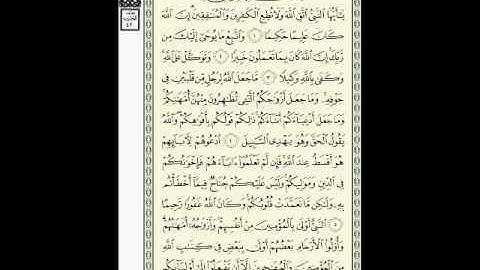 يَٰٓأَيُّهَا ٱلنَّبِيُّ ٱتَّقِ ٱللَّهَ وَلَا تُطِعِ ٱلْكَٰفِرِينَ وَٱلْمُنَٰفِقِينَ إِنَّ ٱللَّهَ
كَانَ عَلِيمًا حَكِيمًا ١ وَٱتَّبِعْ مَا يُوحَىٰٓ إِلَيْكَ مِن
رَّبِّكَ إِنَّ ٱللَّهَ كَانَ بِمَا تَعْمَلُونَ خَبِيرًا ٢ وَتَوَكَّلْ عَلَى ٱللَّهِ
وَكَفَىٰ بِٱللَّهِ وَكِيلًا ٣ مَّا جَعَلَ ٱللَّهُ لِرَجُلٍ مِّن قَلْبَيْنِ فِي
جَوْفِهِۦ وَمَا جَعَلَ أَزْوَٰجَكُمُ ٱلَّٰٓـِٔي تُظَٰهِرُونَ مِنْهُنَّ أُمَّهَٰتِكُمْ
وَمَا جَعَلَ أَدْعِيَآءَكُمْ أَبْنَآءَكُمْ ذَٰلِكُمْ قَوْلُكُم بِأَفْوَٰهِكُمْ وَٱللَّهُ
يَقُولُ ٱلْحَقَّ وَهُوَ يَهْدِي ٱلسَّبِيلَ ٤ ٱدْعُوهُمْ لِأٓبَآئِهِمْ
هُوَ أَقْسَطُ عِندَ ٱللَّهِ فَإِن لَّمْ تَعْلَمُوٓا۟ ءَابَآءَهُمْ فَإِخْوَٰنُكُمْ
فِي ٱلدِّينِ وَمَوَٰلِيكُمْ وَلَيْسَ عَلَيْكُمْ جُنَاحٌ فِيمَآ أَخْطَأْتُم
بِهِۦ وَلَٰكِن مَّا تَعَمَّدَتْ قُلُوبُكُمْ وَكَانَ ٱللَّهُ غَفُورًا رَّحِيمًا
٥ ٱلنَّبِيُّ أَوْلَىٰ بِٱلْمُؤْمِنِينَ مِنْ أَنفُسِهِمْ وَأَزْوَٰجُهُۥٓ أُمَّهَٰتُهُمْ
وَأُو۟لُوا۟ ٱلْأَرْحَامِ بَعْضُهُمْ أَوْلَىٰ بِبَعْضٍ فِي كِتَٰبِ ٱللَّهِ
مِنَ ٱلْمُؤْمِنِينَ وَٱلْمُهَٰجِرِينَ إِلَّآ أَن تَفْعَلُوٓا۟ إِلَىٰٓ أَوْلِيَآئِكُم